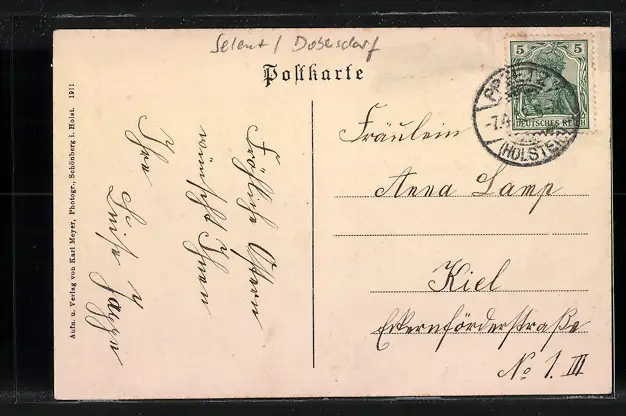 Selent / Dobersdorf
Postkarte
5 5
DEUTSCHES REICH
PREETZ
-7.4
(HOLSTEIN)
Aufn. u. Verlag von Karl Meyer, Photogr., Schönberg i. Holst. 1911
Fröhliche Ostern
wünscht Ihnen
Ihre
Luise
Fräulein
Anna Lamp
Kiel
Eckernförderstraße
No 1. III